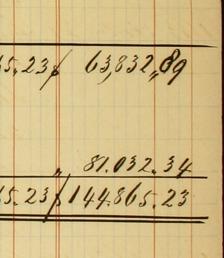 5.23 63,832,89
" 81.032.34
65.23 144.865.23